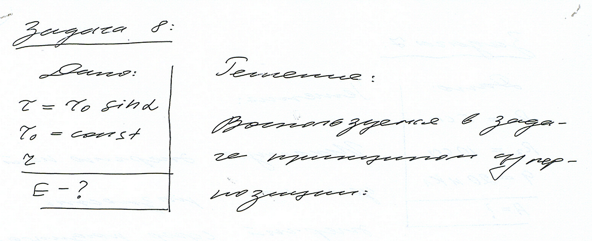 Задача 8:
Дано:
τ = τ₀ sinα
τ₀ = const
r
E - ?
Решение:
Воспользуемся в зада-
че принципом супер-
позиции: